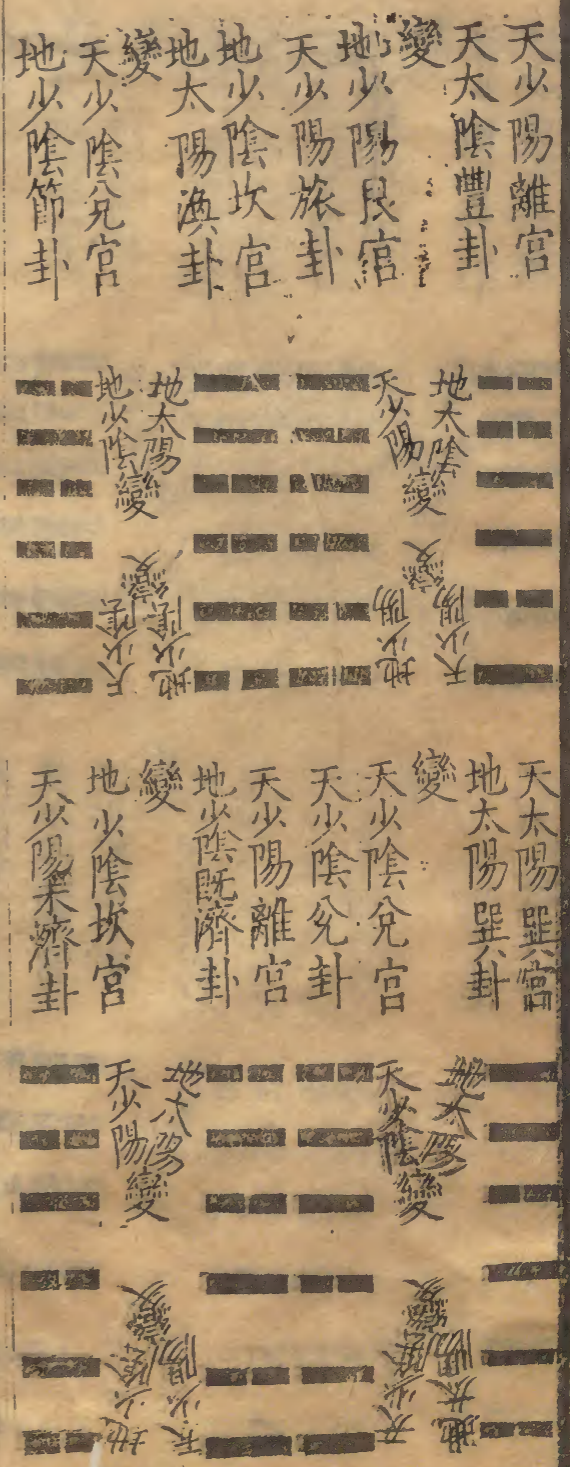 天少陽離宮
天太陰豐卦
變
地少陽艮宮
天少陽旅卦
地少陰坎宮
地太陽渙卦
變
天少陰兌宮
地少陰節卦
地太陰
天少陽
變
天少陽
地少陽
變
地太陽
地少陰
變
地少陰
天少陰
變
天太陽巽宮
地太陽巽卦
變
天少陰兌宮
天少陰兌卦
天少陽離宮
地少陰既濟卦
變
地少陰坎宮
天少陽未濟卦
地太陽
天少陰
變
地太陽
天少陰
變
地太陽
天少陽
變
天少陽
地少陰
變